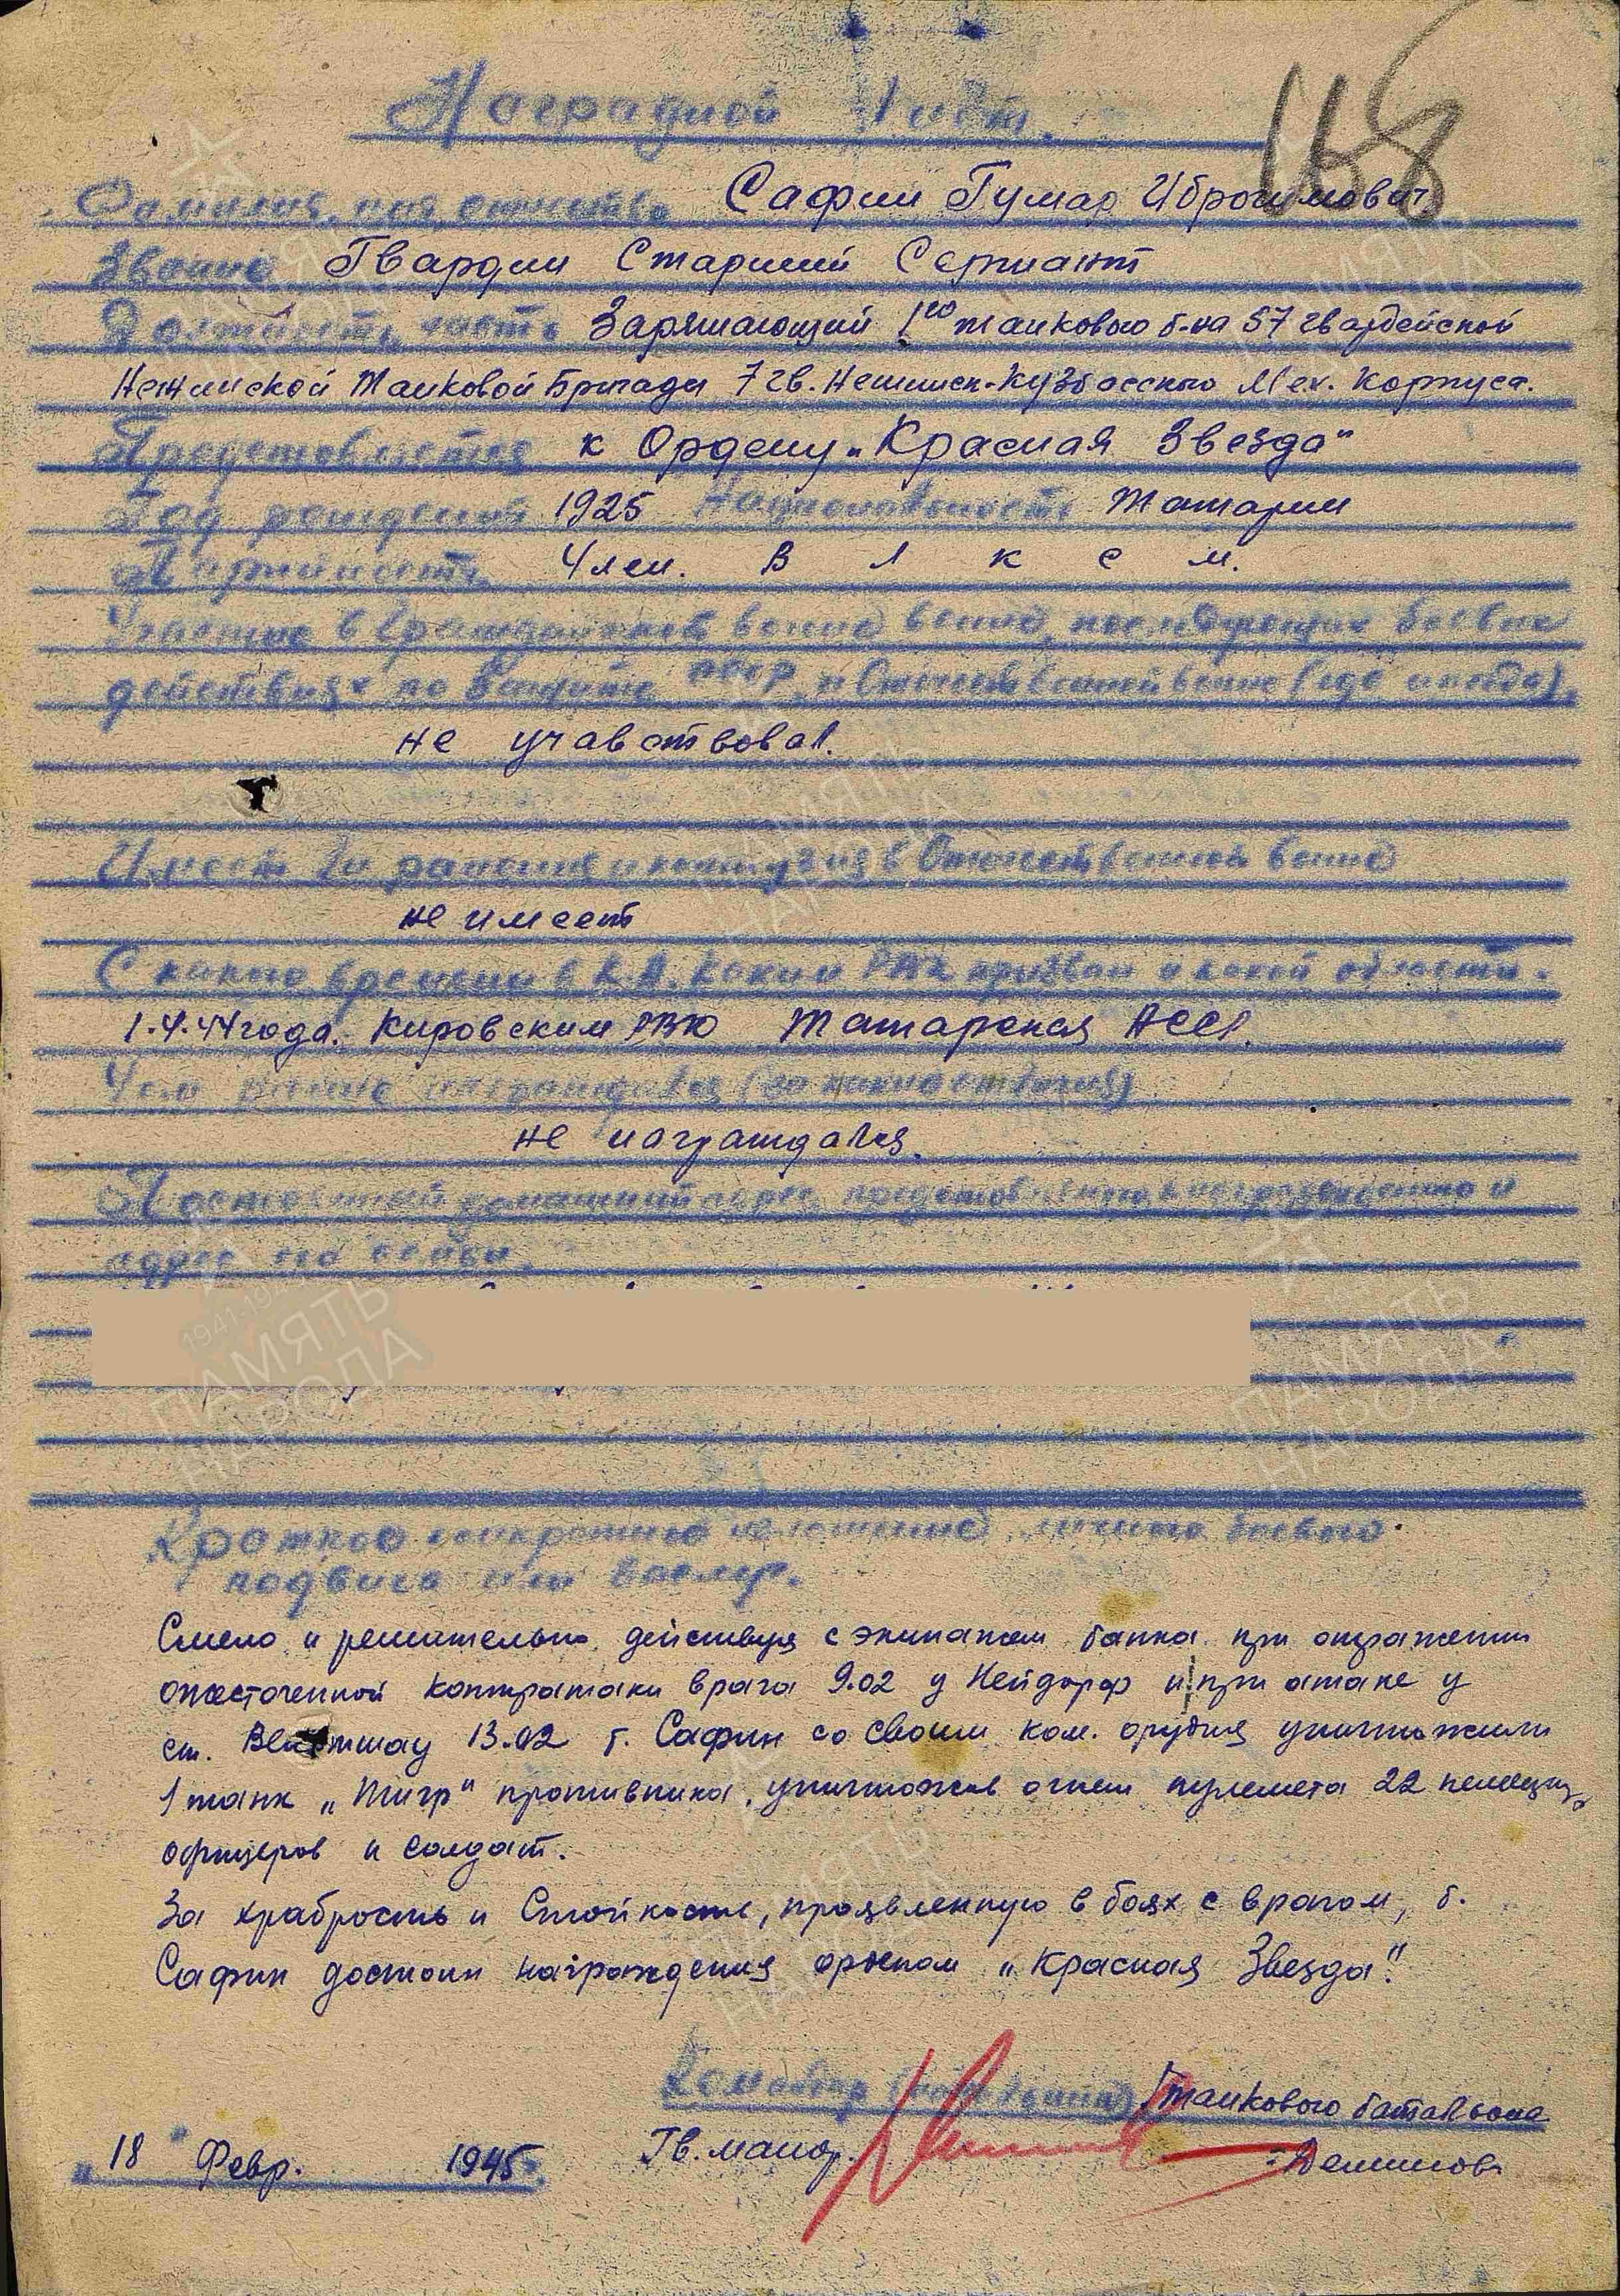 Наградной Лист.
168
Фамилия, имя, отчество Сафин Гумар Иброгимович
Звание Гвардии Старший Сержант
Должность, часть Заряжающий 1го танкового б-на 57 гвардейской
Нежинской Танковой Бригады 7 гв. Нежинск-Кузбасского Мех. Корпуса.
Представляется к Ордену „Красная Звезда"
Год рождения 1925 Национальность Татарин
Партийность Член. В Л К С М.
Участие в гражданской войне, последующих боевых
действиях по защите СССР и Отечественной войне (где и когда),
не учавствовал.
Имеет ли ранения и контузия в Отечественной войне
не имеет
С какого времени в К.А. Каким РВК призван и какой области.
1.4.44 года. Кировским РВК Татарская АССР.
Чем ранее награждался (за какие отличия)
не награждался.
Постоянный домашний адрес представляемого к награждению и
адрес его семьи.
Краткое конкретное изложение личного боевого
подвига или заслуг.
Смело и решительно действуя с экипажем танка при отражении
ожесточенной контратаки врага 9.02 у Нейдорф и при атаке у
ст. 13.02 т. Сафин со своим ком. орудия уничтожили
1 танк „Тигр" противника, уничтожив огнем пулемета 22 немецких
офицеров и солдат.
За храбрость и Стойкость, проявленную в боях с врагом, т.
Сафин достоин награждения орденом „Красная Звезда".
Командир 1 танкового баталъона
Гв. майор. -Деминов-
„18 Февр. 1945
1941-1945
ПАМЯТЬ
НАРОДА